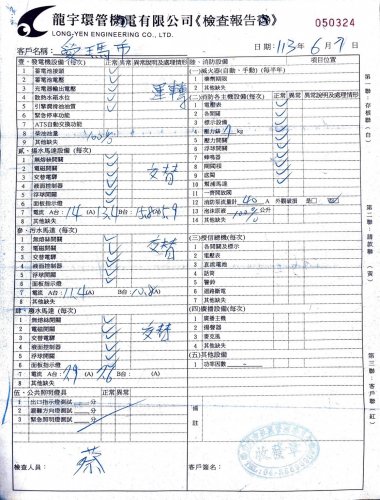 龍宇環管機電有限公司《檢查報告書》
LONG-YEN ENGINEERING CO., LTD.
050324
客戶名稱：愛瑪市
日期：113年6月7日
壹、發電機設備（每次） 正常 異常 異常說明及處理情形
1 蓄電池接頭
2 蓄電池電壓
3 充電器輸出電壓 運轉
4 散熱水箱水位
5 引擎潤滑油油質
6 緊急停車功能
7 ATS自動交換功能
8 柴油油量 100%
9 其他缺失
貳、揚水馬達設備（每次）
1 無熔絲開關
2 電磁開關
3 交替電驛 交替
4 液面控制器
5 浮球開關
6 面板指示燈
7 電流 A台：14 13.4 (A) B台：15.8 15.9
8 其他缺失
參、污水馬達（每次）
1 無熔絲開關
2 電磁開關
3 交替電驛 交替
4 液面控制器
5 浮球開關
6 面板指示燈
7 電流 A台：11.4 (A) B台：10.8 (A)
8 其他缺失
肆、廢水馬達（每次）
1 無熔絲開關
2 電磁開關
3 交替電驛 交替
4 液面控制器
5 浮球開關
6 面板指示燈
7 電流 A台：7.9 (A) 7.6 (A)
8 其他缺失
伍、公共照明燈具 正常 異常
1 出口指示燈測試 分
2 避難方向燈測試 分
3 緊急照明燈測試 分
檢查人員：蔡
陸、消防設備 項目位置
(一)滅火器(自動、手動)（每半年）
1 藥劑期限
2 其他缺失
(二)消防各主機設備(每次) 正常 異常 異常說明及處理情形
1 電壓表
2 各開關
3 標示設備
4 壓力錶 kg
5 壓力開關
6 浮球開關
7 蜂鳴器
8 閘閥
9 底閥
10 幫浦馬達
11 一齊開放閥
12 消防泵浦流量計 40 A 外觀破損 是□ 否
13 泡沫原液 100% 公升
14 其他缺失
(三)受信總機（每次）
1 各開關及標示
2 電壓表
3 直流電池
4 話筒
5 警鈴
6 迴路斷電
7 其他缺失
(四)廣播設備（每次）
1 廣播主機
2 揚聲器
3 麥克風
4 其他缺失
(五)其他設備
1 功率因數
備註
客戶簽名：
收發章
第一聯：存根聯（白）
第二聯：請款聯（黃）
第三聯：客戶聯（紅）